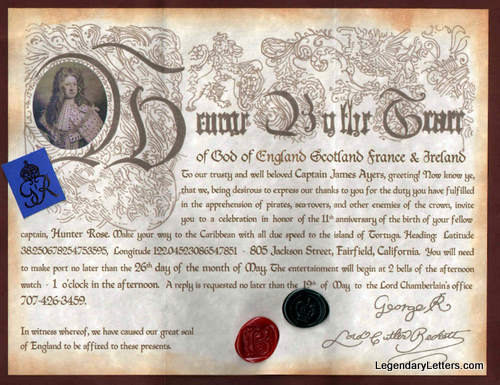 By the Grace
of God of England Scotland France & Ireland
To our trusty and well beloved Captain James Ayers, greeting! Now know ye,
that we, being desirous to express our thanks to you for the duty you have fulfilled
in the apprehension of pirates, sea-rovers, and other enemies of the crown, invite
you to a celebration in honor of the 11th anniversary of the birth of your fellow
captain, Hunter Rose. Make your way to the Caribbean with all due speed to the island of Tortuga. Heading: Latitude
38.250678254753595, Longitude 122.04523086547851 - 805 Jackson Street, Fairfield, California. You will need
to make port no later than the 26th day of the month of May. The entertainment will begin at 2 bells of the afternoon
watch - 1 o'clock in the afternoon. A reply is requested no later than the 19th of May to the Lord Chamberlain's office
707-426-3459.
George R
In witness whereof, we have caused our great seal
of England to be affixed to these presents.
Lord Cutler Beckett
GR
LegendaryLetters.com